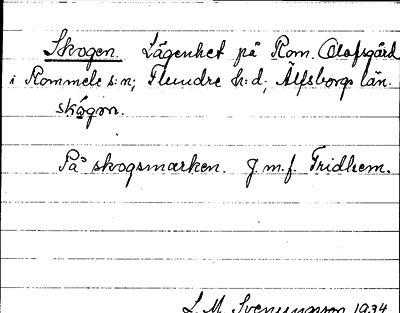 Skogen. Lägenhet på Rom. Olofsgård
i Rommele s:n; Flundre h:d, Älfsborgs län.
skógɷn.
På skogsmarken. J.m.f. Fridhem.
L. M. Svenungsson 1934